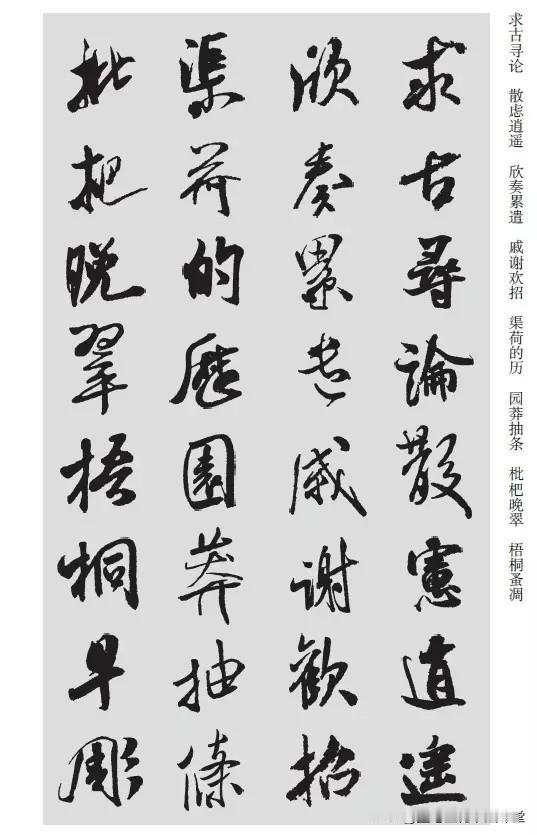 求古寻论 散虑逍遥 欣奏累遣 戚谢欢招 渠荷的历 园莽抽条 枇杷晚翠 梧桐蚤凋
求古尋論散慮逍遙
欣奏累遣戚謝歡招
渠荷的歷園莽抽條
枇杷晚翠梧桐早彫